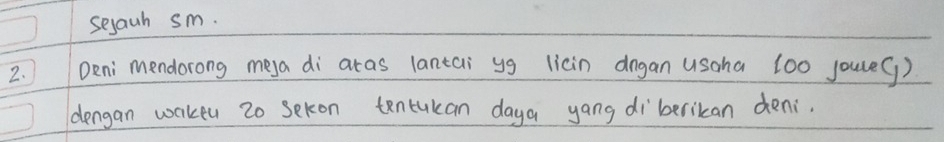 sejauh sm.
2. Deni mendorong meja di atas lantai yg licin dngan usaha 100 joule (j)
dengan waktu 20 sekon tentukan daya yang di berikan deni.